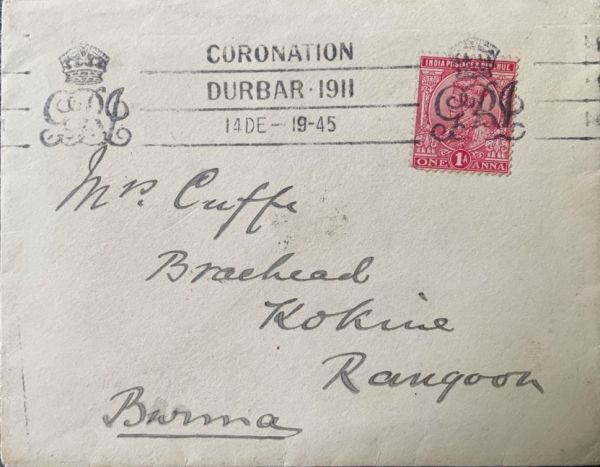 CORONATION
DURBAR · 1911
14 DE - 19-45
INDIA POSTAGE & REVENUE
ONE 1A ANNA
Mrs. Cuffe
Braehead
Kokine
Rangoon
Burma